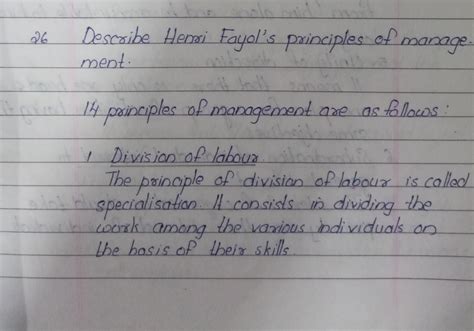 26 Describe Henri Fayol's principles of manage-
ment.
14 principles of management are as follows:
1 Division of labour
The principle of division of labour is called
specialisation. It consists in dividing the
work among the various individuals on
the basis of their skills.